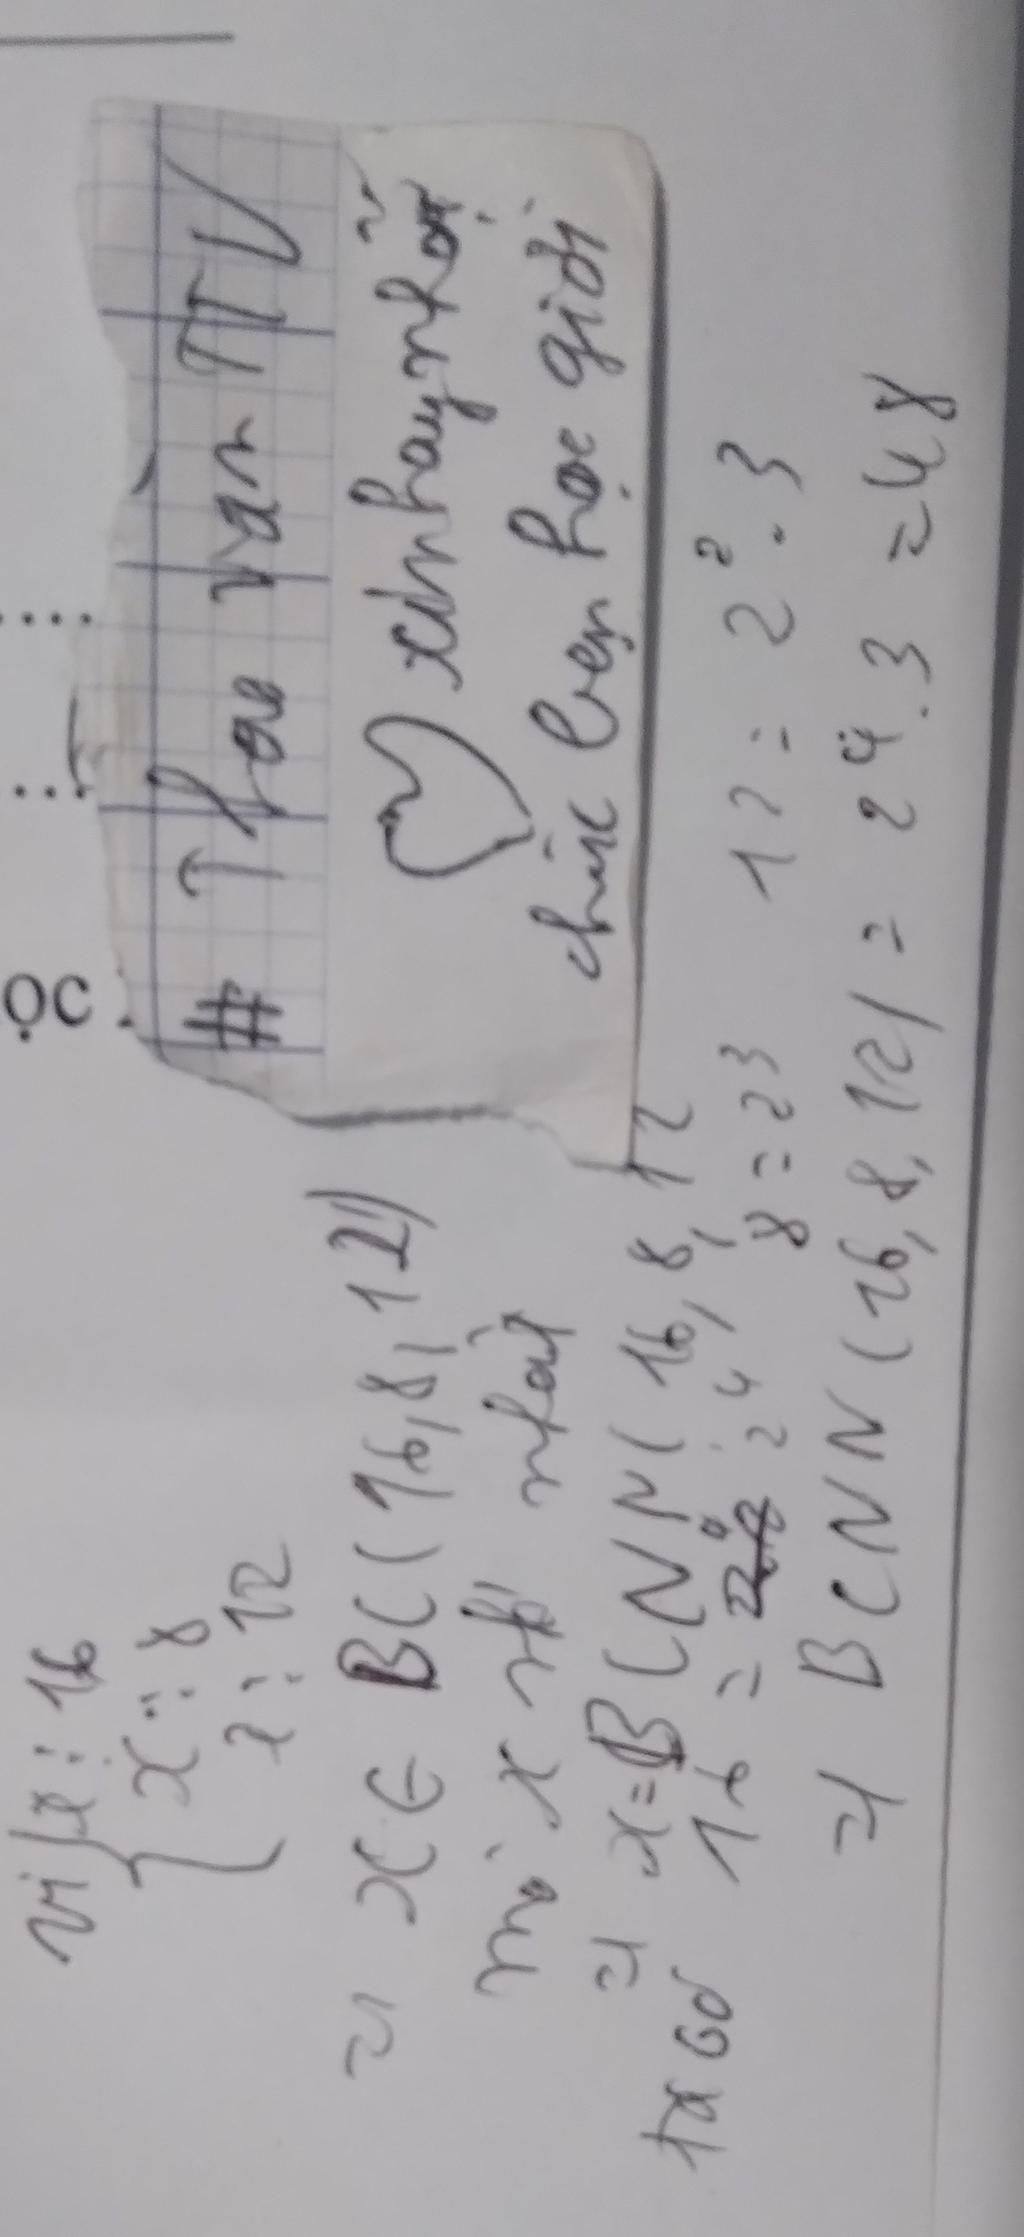 vì { x ⋮ 16
x ⋮ 8
x ⋮ 12
=> x ∈ BC(16,8,12)
mà x nhỏ nhất
=> x = BCNN(16,8,12
ta có 16 = 2⁴ 8 = 2³ 12 = 2².3
=> BCNN(16,8,12) = 2⁴.3 = 48
ọc
# Thơ văn TTV
xinh hay nhỡ
chúc bạn học giỏi